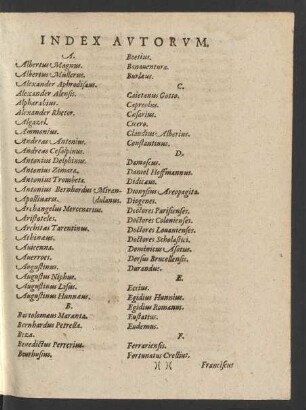 INDEX AVTORVM.
A.
Albertus Magnus.
Albertus Multerus.
Alexander Aphrodisæus.
Alexander Alensis.
Alpharabius.
Alexander Rhetor.
Algazel.
Ammonius.
Andreas Antonius.
Andreas Cæsalpinus.
Antonius Delphinus.
Antonius Zimara.
Antonius Trombeta.
Antonius Bernhardus Miran-
Apollinaris. (dulanus.
Archangelus Mercenarius.
Aristoteles.
Architas Tarentinus.
Auicenna.
Auerroes.
Augustinus.
Augustus Niphus.
Augustinus Hunnæus.
B.
Bartolomæus Maranta.
Bernhardus Petrella.
Beza.
Benedictus Pererius.
Boethusius.
Boetius.
Bonauentura.
Burlæus.
C.
Caietanus
Capreolus.
Cæsarius.
Cicero.
Claudius Alberius.
Constantinus.
D.
Damascus.
Daniel Hoffmannus.
Didacus.
Dionysius Areopagita.
Diogenes.
Doctores Parisienses.
Doctores Colonienses.
Doctores Louanienses.
Doctores Scholastici.
Dominicus Asotus.
Dorsus Brucellensis.
Durandus.
E.
Eccius.
Egidius Hunnius.
Egidius Romanus.
Eustatius.
Eudemus.
F.
Ferrariensis.
Fortunatus Crellius.
)( )( Franciscus